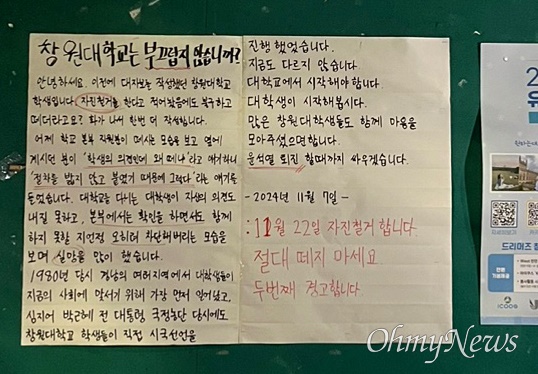 창원대학교는 부끄럽지 않습니까?
안녕하세요. 이전에 대자보는 작성했던 창원대학교
학생입니다. 자진철거를 한다고 적어놨음에도 불구하고
떼더라고요? 화가 나서 한번 더 작성합니다.
어제 학교 본부 직원분이 떼시는 모습을 보고 옆에
계시던 분이 "학생의 의견인데 왜 떼냐"라고 얘기하니
"절차를 밟지 않고 붙였기 때문에 그렇다"라는 얘기를
들었습니다. 대학교를 다니는 대학생이 자생의 의견도
내질 못하고, 본부에서는 확인을 하면서도 함께
하지 못할 지언정 오히려 차단해버리는 모습을
보며 실망을 많이 했습니다.
1980년 당시 경남의 여러지역에서 대학생들이
지금의 사회에 맞서기 위해 가장 먼저 일어났고,
심지어 박근혜 전 대통령 국정농단 당시에도
창원대학교 학생들이 직접 시국선언을
진행했었습니다.
지금도 다르지 않습니다.
대학교에서 시작해야합니다.
대학생이 시작해봅시다.
많은 창원대학생들도 함께 마음을
모아주셨으면합니다.
윤석열 퇴진 할때까지 싸우겠습니다.
-2024년 11월 7일-
:11월 22일 자진철거 합니다.
절대 떼지 마세요
두번째 경고합니다
2
유
드리어즈 캠
icoop
OhmyNews